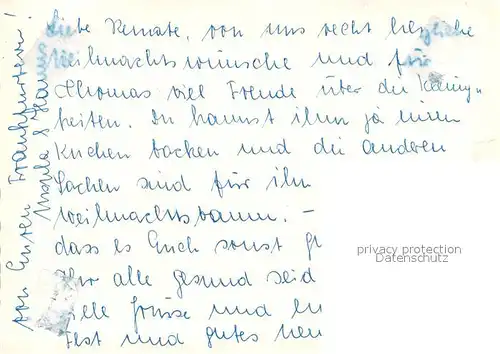 Liebe Renate, von uns recht herzliche
Weihnachtswünsche und für
Thomas viel Freude über die
heiten. Du kannst ihm ja einen
Kuchen backen und die anderen
Sachen sind für ihn
Weihnachtsbaum. –
dass es Euch sonst g
Ihr alle gesund seid
viele Grüsse und
Fest und gutes neu
von Euren Frankfurtern!
Ursula & Hans
privacy protection
Datenschutz